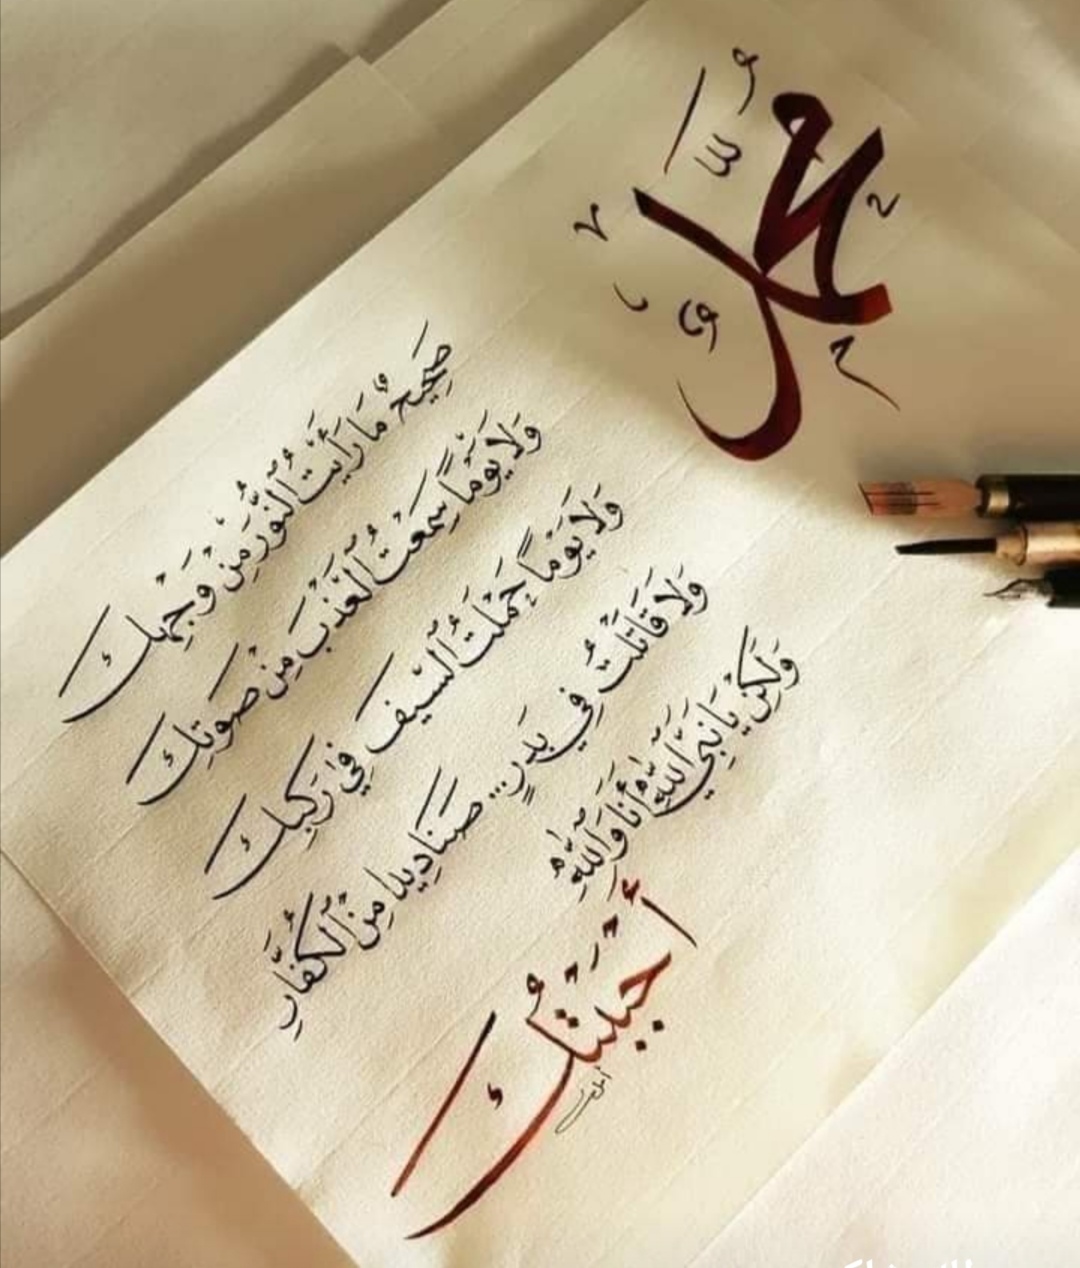 محمد
صَحِيحٌ مَا رَأَيْتُ ٱلنُّورَ مِنْ وَجِهِكْ
وَلَا يَوْمًا سَمِعْتُ ٱلْعَذْبَ مِنْ صَوتِكْ
وَلَا يَوْمًا حَمَلْتُ ٱلسَّيفَ فِي رَكْبِكْ
وَلَا قَاتَلْتُ فِي بَدْرٍ... صَنَادِيدا مِنَ ٱلْكُفَّارِ
وَلَكِنْ يَا نَبِيَّ ٱللَّهِ أَنَا وَٱللَّهِ
أَحْبَبْتُكْ